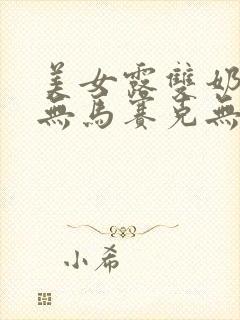 美女露雙奶
無馬賽克無
小希